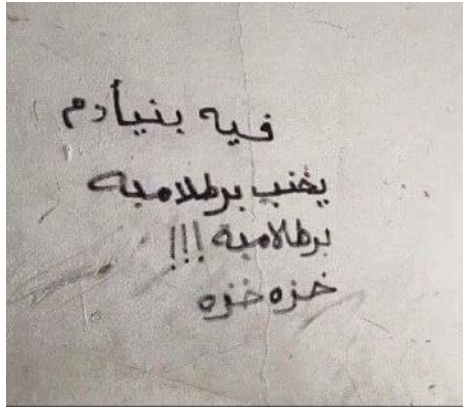 فيه بنيأدم
يخنب برطلامبه
برطلامبه !!!
خزه خزه